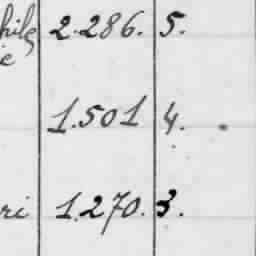 hilg 2.286. 5.
e
1.501 4.
ri 1.270. 3.